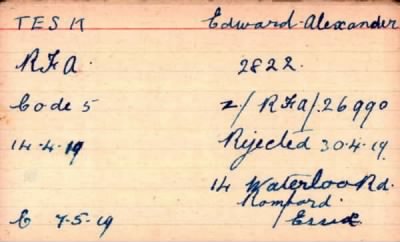 TESK Edward Alexander
RFA. 2822.
Code 5 Z/RFA/.26990
14.4.19 Rejected 30.4.19.
14 Waterloo Rd.
Romford.
C 7.5.19 Essex